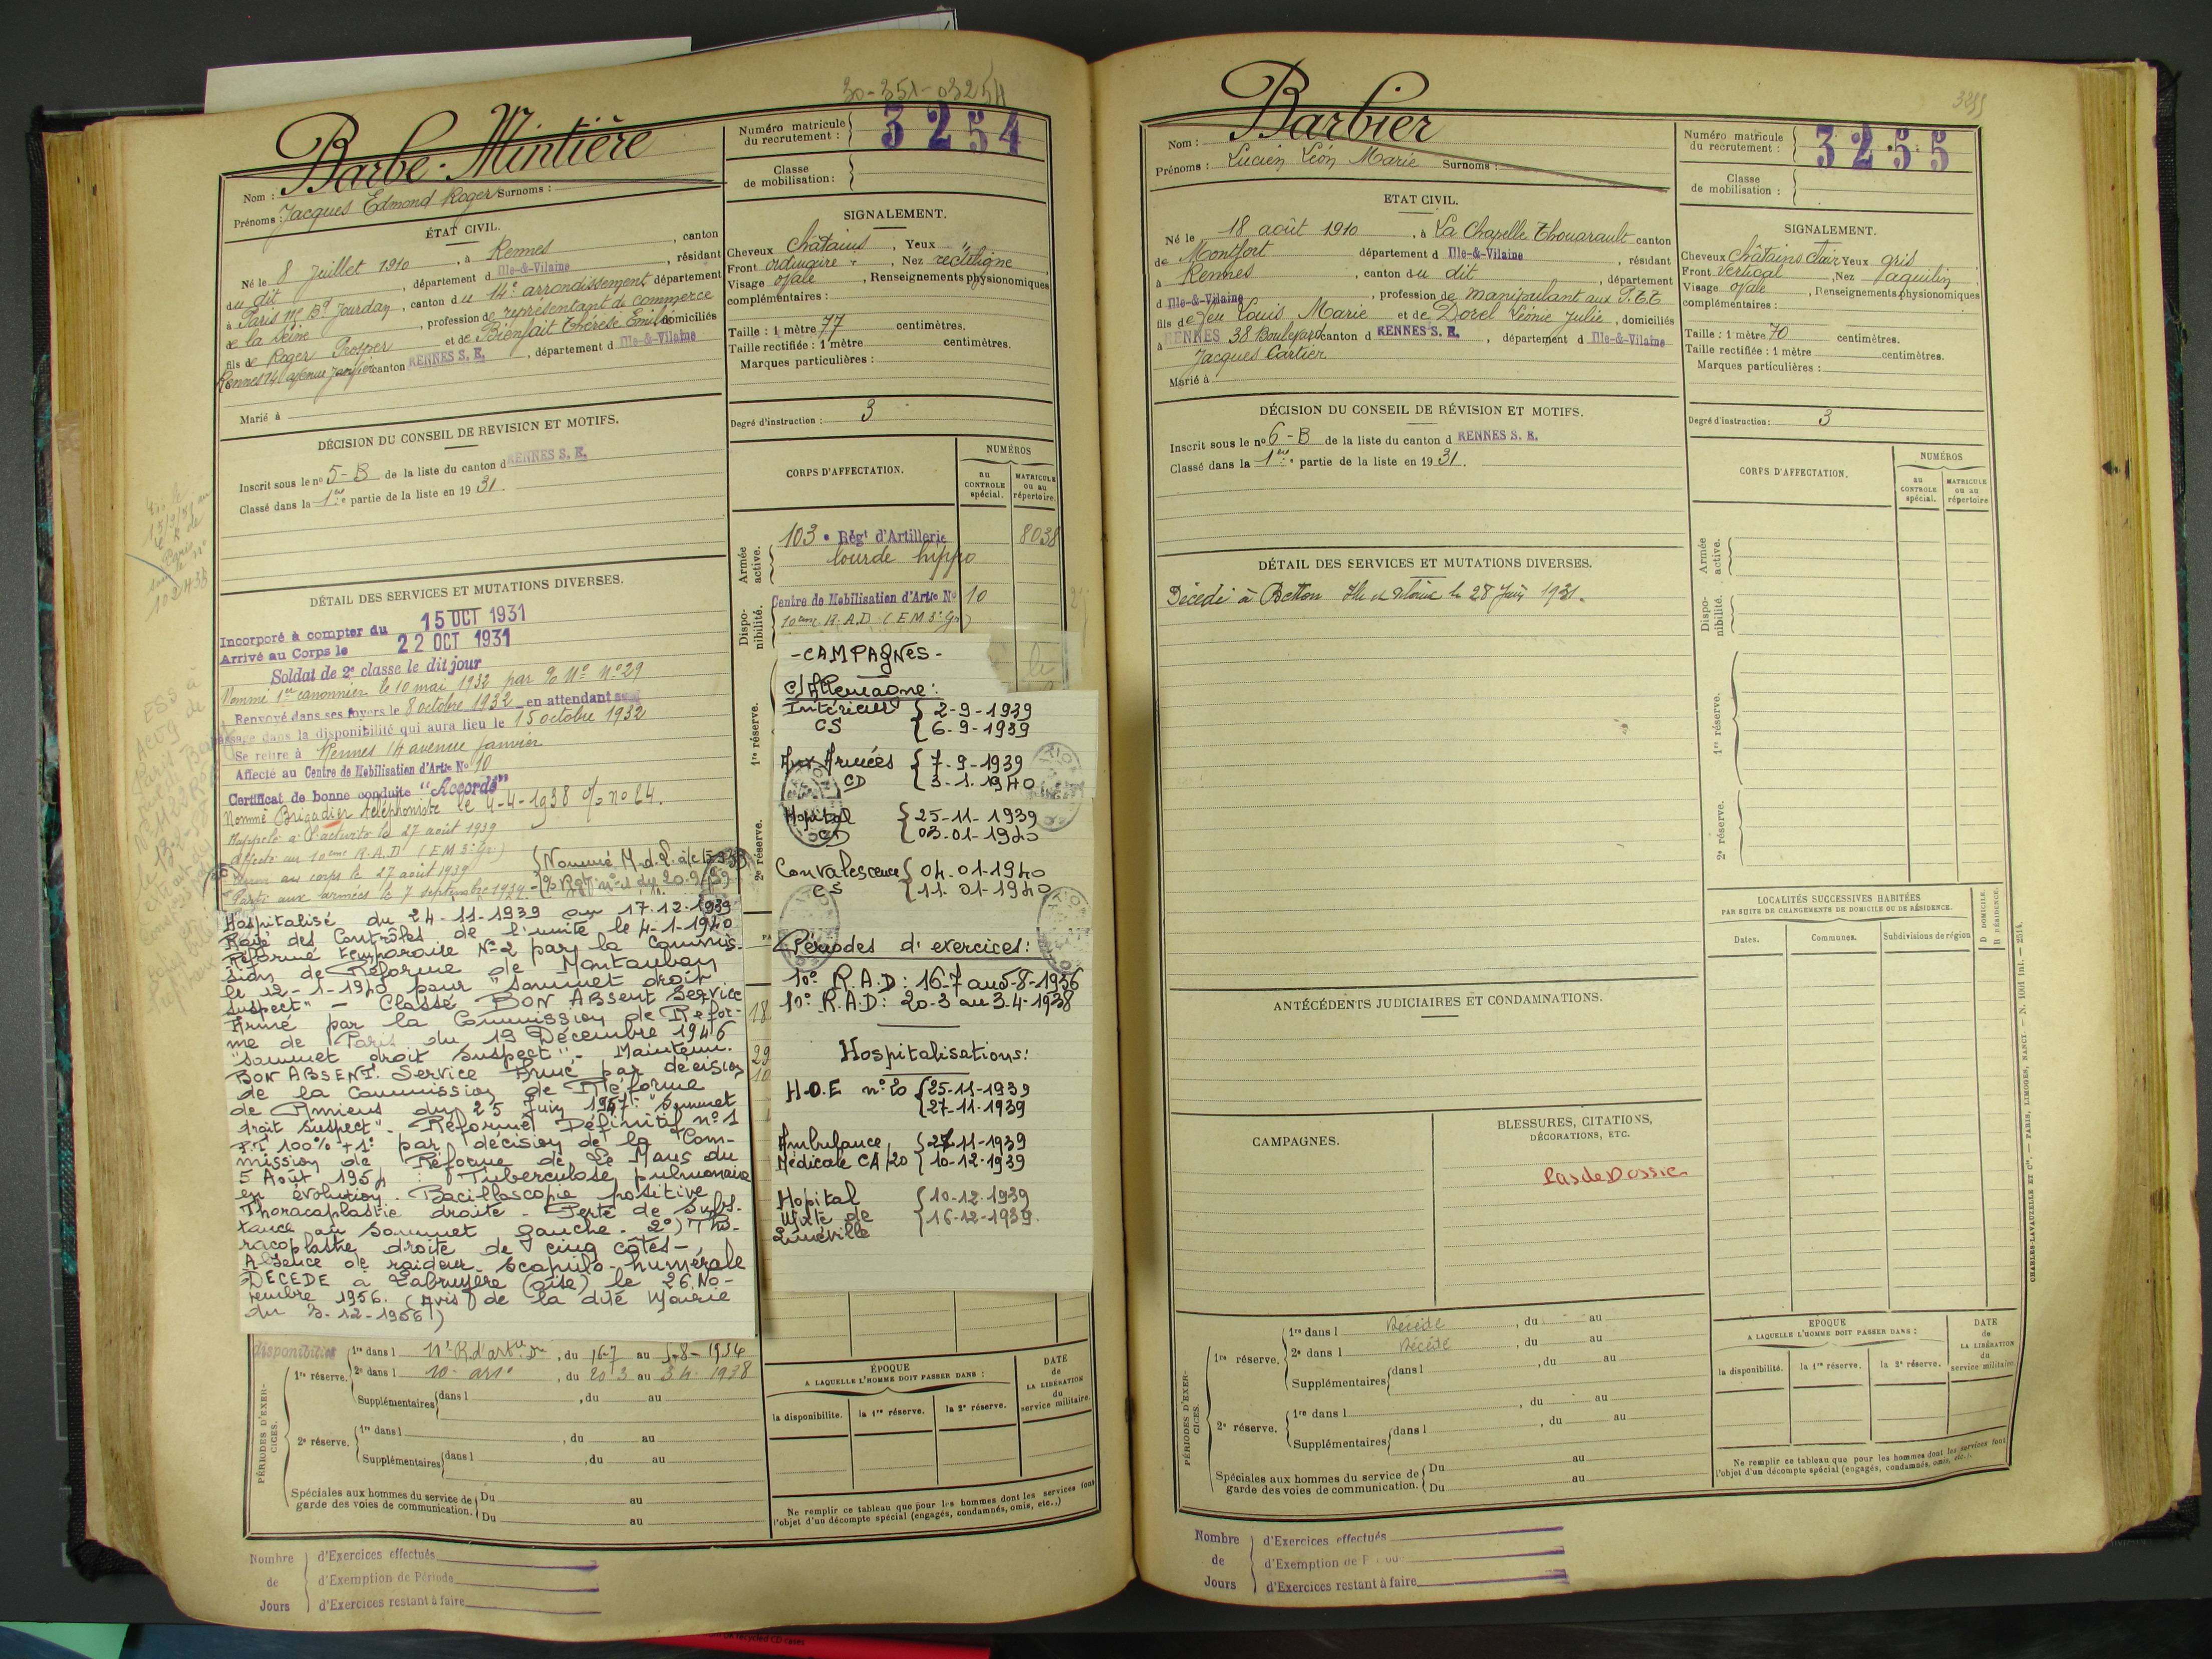 30-351-03254
Barbe-Mintière
Nom :
Prénoms : Jacques Edmond Roger Surnoms :
Numéro matricule du recrutement : 3254
Classe de mobilisation :
ÉTAT CIVIL.
Né le 8 Juillet 1910, à Rennes, canton
du dit, département d Ille-&-Vilaine, résidant
à Paris 111 Bd Jourdan, canton du 14e arrondissement département
de la Seine, profession de représentant de commerce
fils de Roger Prosper et de Bienfait Thérèse Emilie domiciliés
Rennes 14 avenue Janvier canton RENNES S. E., département d Ille-&-Vilaine
Marié à
SIGNALEMENT.
Cheveux châtains, Yeux "
Front ordinaire, Nez rectiligne
Visage ovale, Renseignements physionomiques
complémentaires :
Taille : 1 mètre 77 centimètres.
Taille rectifiée : 1 mètre centimètres.
Marques particulières :
Degré d'instruction : 3
DÉCISION DU CONSEIL DE REVISION ET MOTIFS.
Inscrit sous le no 5-B de la liste du canton d RENNES S. E.
Classé dans la 1ère partie de la liste en 1931.
CORPS D'AFFECTATION.
NUMÉROS
au CONTROLE spécial.
MATRICULE ou au répertoire.
Armée active.
103e Régt d'Artillerie 8038
lourde hippo
Dispo-nibilité.
Centre de Mobilisation d'Artie No 10
10ème R.A.D (EM 3e Gr)
1re réserve.
2e réserve.
DÉTAIL DES SERVICES ET MUTATIONS DIVERSES.
Incorporé à compter du 15 OCT 1931
Arrivé au Corps le 22 OCT 1931
Soldat de 2e classe le dit jour
Nommé 1er canonnier le 10 mai 1932 par % No no 29
Renvoyé dans ses foyers le 8 octobre 1932 en attendant son
passage dans la disponibilité qui aura lieu le 15 octobre 1932
Se retire à Rennes 14 avenue Janvier
Affecté au Centre de Mobilisation d'Artie No 10
Certificat de bonne conduite "Accordé"
Nommé Brigadier téléphoniste le 4-4-1938 % no 24.
Rappelé à l'activité le 27 août 1939
Affecté au 10ème R.A.D (EM 3e Gr.)
Arrivé au corps le 27 août 1939
Parti aux armées le 7 septembre 1939
Hospitalisé du 24-11-1939 au 17-12-1939
Rayé des Contrôles de l'unité le 4-1-1940
Réformé temporaire No 2 par la Commis-
sion de Réforme de Montauban
le 12-1-1940 pour "sommet droit
suspect" - Classé BON ABSent Service
Armé par la Commission de Réfor-
me de Paris du 19 Décembre 1946
"sommet droit suspect" - Maintenu.
BON ABSENT. Service Armé par décision
de la Commission de Réforme
de Amiens du 25 Juin 1947: "Sommet
droit suspect" - Réformé Définitif no 1
P.T 100% + 1° par décision de la Com-
mission de Réforme de Le Mans du
5 Août 1954 : Tuberculose pulmonaire
en évolution. Bacilloscopie positive
Thoracoplastie droite - Perte de Subs-
tance au Sommet gauche - 2°) Tho-
racoplastie droite de cinq côtes -
Absence de raideur scapulo-humérale
DECEDE à Labruyère (Oise) le 26 No-
vembre 1956. (Avis de la dite Mairie
du 3-12-1956)
-CAMPAGNES-
C/Allemagne:
Intérieur CS { 2-9-1939
6-9-1939
Aux Armées CD { 7-9-1939
3-1-1940
Hopital CD { 25-11-1939
03-01-1940
Convalescence CS { 04-01-1940
11-01-1940
Périodes d'exercices:
10e R.A.D: 16-7 au 5-8-1936
10e R.A.D: 20-3 au 3-4-1938
Hospitalisations:
H.O.E no 20 { 25-11-1939
27-11-1939
Ambulance Médicale CA/20 { 27-11-1939
10-12-1939
Hopital Mixte de Lunéville { 10-12-1939
16-12-1939.
PÉRIODES D'EXER-CICES.
disponibilité
1re réserve.
1re dans l 10e R. d'art, du 16-7 au 5-8-1936
2e dans l 10e art, du 20 3 au 3 4 1938
Supplémentaires dans l , du au
2e réserve.
1re dans l , du au
Supplémentaires dans l , du au
Spéciales aux hommes du service de garde des voies de communication. Du au
Du au
ÉPOQUE
A LAQUELLE L'HOMME DOIT PASSER DANS :
la disponibilité. la 1re réserve. la 2e réserve.
DATE de LA LIBÉRATION du service militaire.
Ne remplir ce tableau que pour les hommes dont les services font
l'objet d'un décompte spécial (engagés, condamnés, omis, etc.,)
Nombre de Jours
d'Exercices effectués
d'Exemption de Période
d'Exercices restant à faire
3255
Barbier
Nom :
Prénoms : Lucien Léon Marie Surnoms :
Numéro matricule du recrutement : 3255
Classe de mobilisation :
ETAT CIVIL.
Né le 18 août 1910, à La Chapelle Thouarault canton
de Montfort département d Ille-&-Vilaine, résidant
à Rennes, canton du dit, département
d Ille-&-Vilaine, profession de manipulant aux P.T.T
fils de feu Louis Marie et de Dorel Léonie Julie, domiciliés
à RENNES 38 Boulevard canton d RENNES S. E., département d Ille-&-Vilaine
Jacques Cartier
Marié à
SIGNALEMENT.
Cheveux châtains clair Yeux gris
Front vertical, Nez aquilin
Visage ovale, Renseignements physionomiques
complémentaires :
Taille : 1 mètre 70 centimètres.
Taille rectifiée : 1 mètre centimètres.
Marques particulières :
Degré d'instruction : 3
DÉCISION DU CONSEIL DE RÉVISION ET MOTIFS.
Inscrit sous le no 6-B de la liste du canton d RENNES S. E.
Classé dans la 1ère partie de la liste en 1931.
CORPS D'AFFECTATION.
NUMÉROS
au CONTROLE spécial.
MATRICULE ou au répertoire
Armée active.
Dispo-nibilité.
1re réserve.
2e réserve.
DÉTAIL DES SERVICES ET MUTATIONS DIVERSES.
Décédé à Betton Ille et Vilaine le 28 Juin 1931.
LOCALITÉS SUCCESSIVES HABITÉES
PAR SUITE DE CHANGEMENTS DE DOMICILE OU DE RÉSIDENCE.
Dates. Communes. Subdivisions de région D DOMICILE. R RÉSIDENCE.
ANTÉCÉDENTS JUDICIAIRES ET CONDAMNATIONS.
CAMPAGNES.
BLESSURES, CITATIONS,
DÉCORATIONS, ETC.
Pas de Dossier
PÉRIODES D'EXER-CICES.
1re réserve.
1re dans l Décédé, du au
2e dans l Décédé, du au
Supplémentaires dans l , du au
2e réserve.
1re dans l , du au
Supplémentaires dans l , du au
Spéciales aux hommes du service de garde des voies de communication. Du au
Du au
EPOQUE
A LAQUELLE L'HOMME DOIT PASSER DANS :
la disponibilité. la 1re réserve. la 2e réserve.
DATE de LA LIBÉRATION du service militaire.
Ne remplir ce tableau que pour les hommes dont les services font
l'objet d'un décompte spécial (engagés, condamnés, omis, etc.).
CHARLES-LAVAUZELLE ET Cie. — PARIS, LIMOGES, NANCY. — N. 1001 int. — 2514.
Nombre de Jours
d'Exercices effectués
d'Exemption de P
d'Exercices restant à faire
recycled CD cases